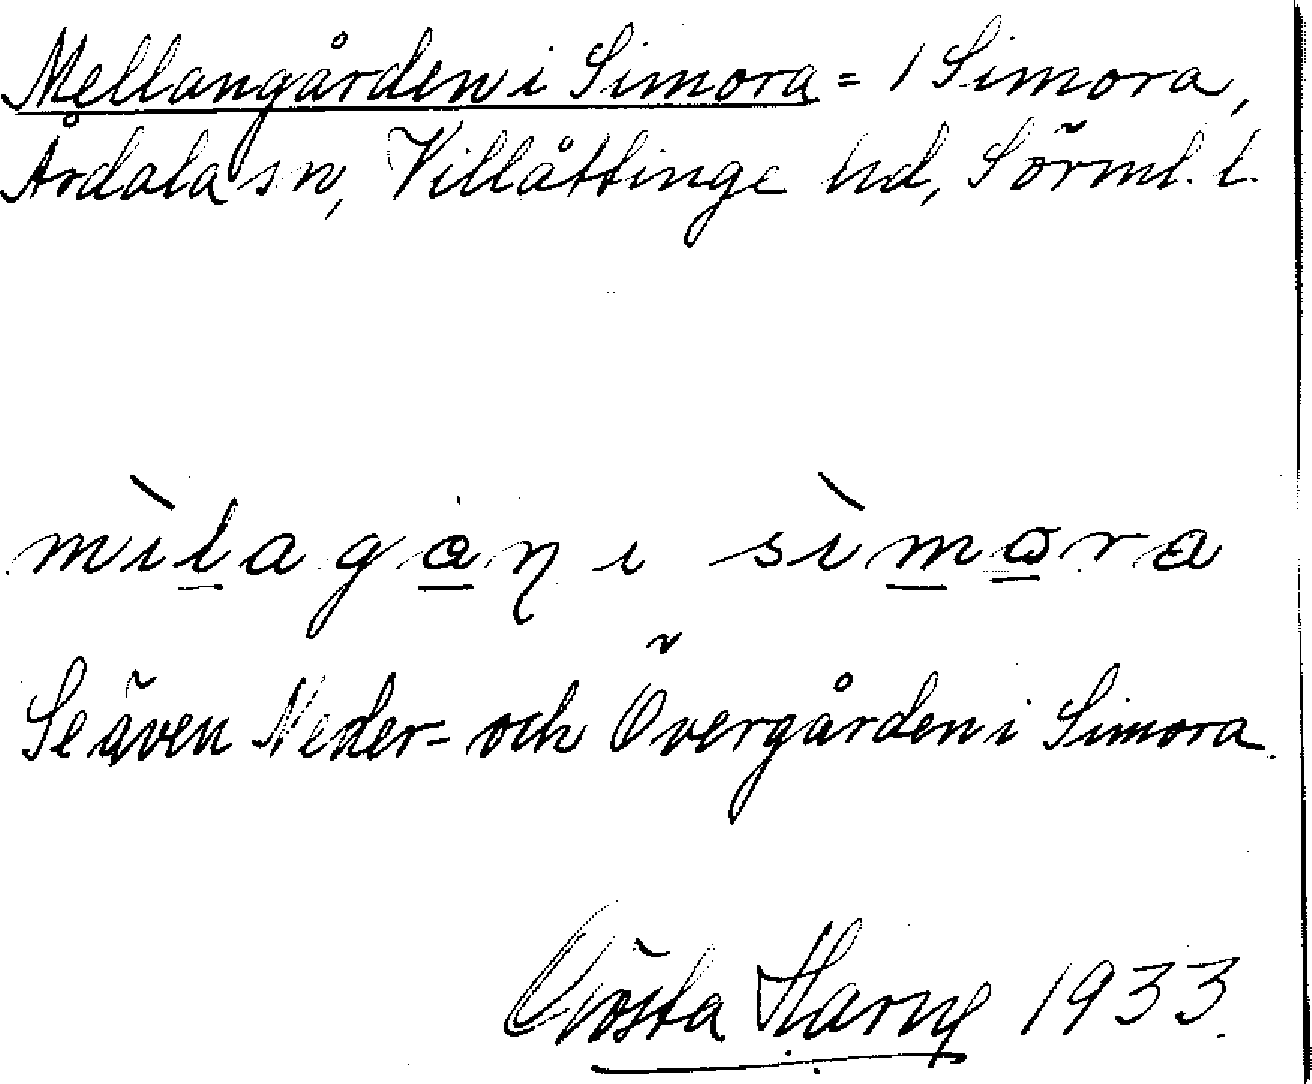 Mellangården i Simora = 1 Simora,
Årdala sn, Villåttinge hd, Sörml. l.
mìlagạṇ i sìmora
Se även Neder- och Övergården i Simora.
Gösta 1933.